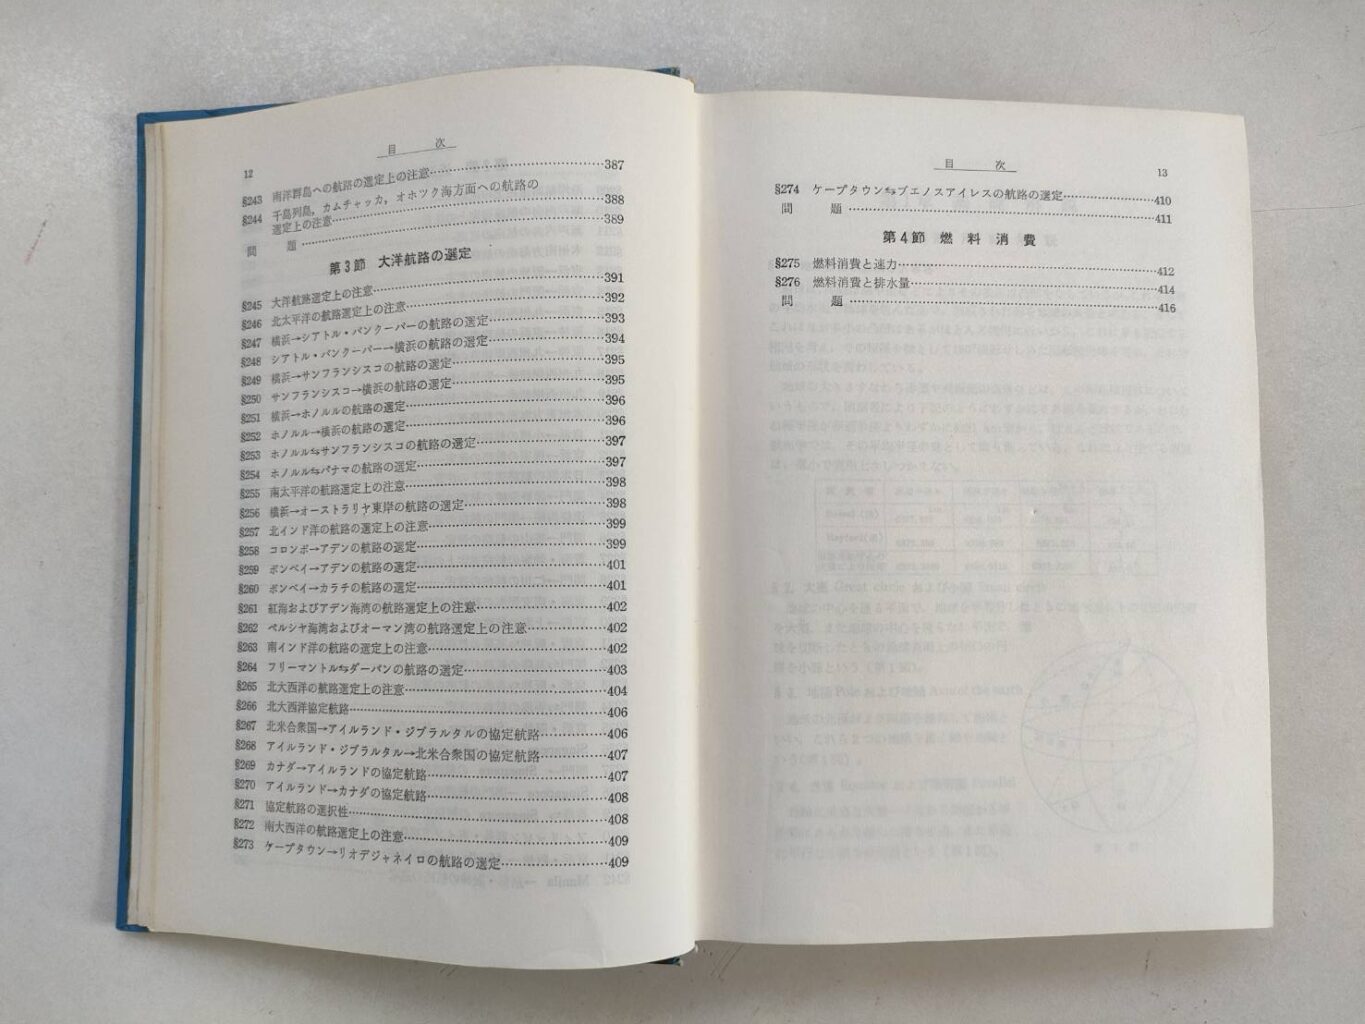 目 次
12
§243 南洋群島への航路の選定上の注意 387
§244 千島列島，カムチャッカ，オホツク海方面への航路の
選定上の注意 388
問 題 389
第3節 大洋航路の選定
§245 大洋航路選定上の注意 391
§246 北太平洋の航路選定上の注意 392
§247 横浜→シアトル・バンクーバーの航路の選定 393
§248 シアトル・バンクーバー→横浜の航路の選定 394
§249 横浜→サンフランシスコの航路の選定 395
§250 サンフランシスコ→横浜の航路の選定 395
§251 横浜→ホノルルの航路の選定 396
§252 ホノルル→横浜の航路の選定 396
§253 ホノルル⇆サンフランシスコの航路の選定 397
§254 ホノルル⇆パナマの航路の選定 397
§255 南太平洋の航路選定上の注意 398
§256 横浜→オーストラリヤ東岸の航路の選定 398
§257 北インド洋の航路の選定上の注意 399
§258 コロンボ→アデンの航路の選定 399
§259 ボンベイ→アデンの航路の選定 401
§260 ボンベイ→カラチの航路の選定 401
§261 紅海およびアデン海湾の航路選定上の注意 402
§262 ペルシヤ海湾およびオーマン湾の航路選定上の注意 402
§263 南インド洋の航路選定上の注意 402
§264 フリーマントル⇆ダーバンの航路の選定 403
§265 北大西洋の航路選定上の注意 404
§266 北大西洋協定航路 406
§267 北米合衆国→アイルランド・ジブラルタルの協定航路 406
§268 アイルランド・ジブラルタル→北米合衆国の協定航路 407
§269 カナダ→アイルランドの協定航路 407
§270 アイルランド→カナダの協定航路 408
§271 協定航路の選択性 408
§272 南大西洋の航路選定上の注意 409
§273 ケープタウン→リオデジャネイロの航路の選定 409
目 次
13
§274 ケープタウン⇆ブエノスアイレスの航路の選定 410
問 題 411
第4節 燃料消費
§275 燃料消費と速力 412
§276 燃料消費と排水量 414
問 題 416